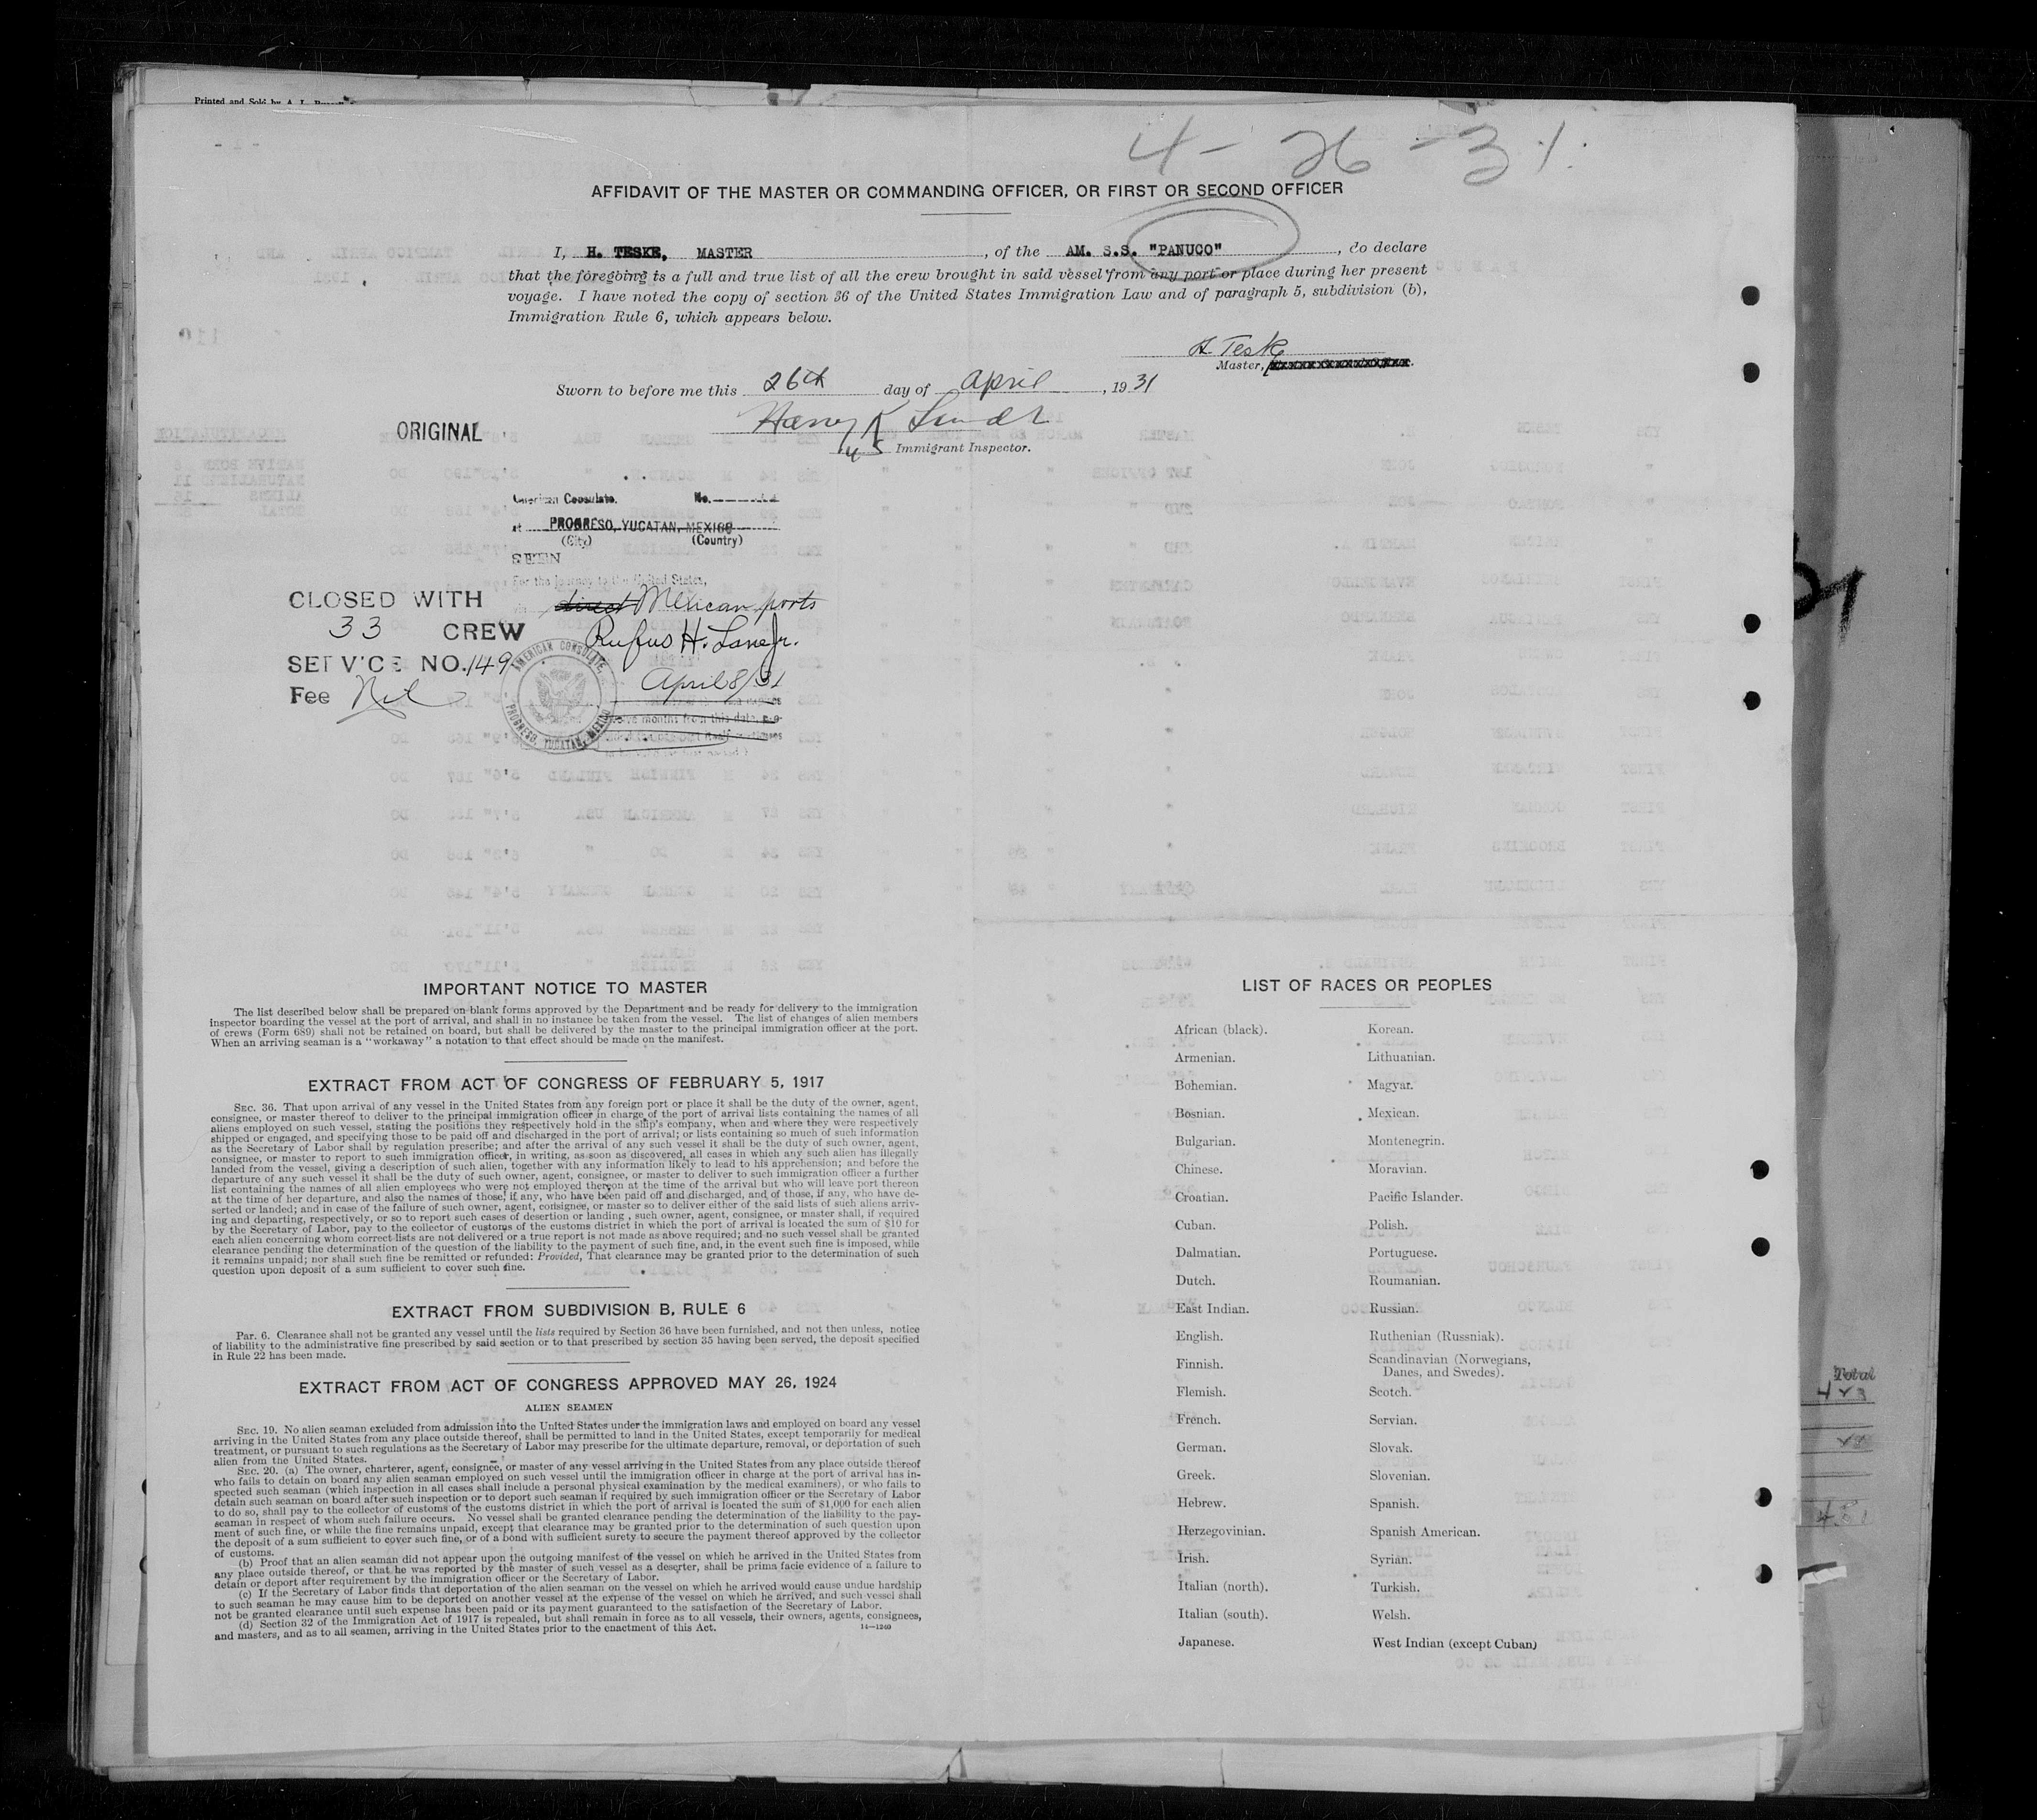 Printed and Sold by A. L.
4-26-31.
AFFIDAVIT OF THE MASTER OR COMMANDING OFFICER, OR FIRST OR SECOND OFFICER
I, H. TESKE, MASTER, of the AM. S.S. "PANUCO", do declare
that the foregoing is a full and true list of all the crew brought in said vessel from any port or place during her present
voyage. I have noted the copy of section 36 of the United States Immigration Law and of paragraph 5, subdivision (b),
Immigration Rule 6, which appears below.
H. Teske
Master,
Sworn to before me this 26th day of April, 1931
Harry K
Immigrant Inspector.
ORIGINAL
American Consulate. No.
at PROGRESO, YUCATAN, MEXICO
(City) (Country)
SEEN
For the journey to the United States,
via direct Mexican ports
Rufus H. Lane Jr.
April 8/31
CLOSED WITH
33 CREW
SERVICE NO. 149
Fee Nil
AMERICAN CONSULATE
PROGRESO, YUCATAN, MEXICO
months from this date,
IMPORTANT NOTICE TO MASTER
The list described below shall be prepared on blank forms approved by the Department and be ready for delivery to the immigration
inspector boarding the vessel at the port of arrival, and shall in no instance be taken from the vessel. The list of changes of alien members
of crews (Form 689) shall not be retained on board, but shall be delivered by the master to the principal immigration officer at the port.
When an arriving seaman is a "workaway" a notation to that effect should be made on the manifest.
EXTRACT FROM ACT OF CONGRESS OF FEBRUARY 5, 1917
SEC. 36. That upon arrival of any vessel in the United States from any foreign port or place it shall be the duty of the owner, agent,
consignee, or master thereof to deliver to the principal immigration officer in charge of the port of arrival lists containing the names of all
aliens employed on such vessel, stating the positions they respectively hold in the ship's company, when and where they were respectively
shipped or engaged, and specifying those to be paid off and discharged in the port of arrival; or lists containing so much of such information
as the Secretary of Labor shall by regulation prescribe; and after the arrival of any such vessel it shall be the duty of such owner, agent,
consignee, or master to report to such immigration officer, in writing, as soon as discovered, all cases in which any such alien has illegally
landed from the vessel, giving a description of such alien, together with any information likely to lead to his apprehension; and before the
departure of any such vessel it shall be the duty of such owner, agent, consignee, or master to deliver to such immigration officer a further
list containing the names of all alien employees who were not employed thereon at the time of the arrival but who will leave port thereon
at the time of her departure, and also the names of those, if any, who have been paid off and discharged, and of those, if any, who have de-
serted or landed; and in case of the failure of such owner, agent, consignee, or master so to deliver either of the said lists of such aliens arriv-
ing and departing, respectively, or so to report such cases of desertion or landing, such owner, agent, consignee, or master shall, if required
by the Secretary of Labor, pay to the collector of customs of the customs district in which the port of arrival is located the sum of $10 for
each alien concerning whom correct lists are not delivered or a true report is not made as above required; and no such vessel shall be granted
clearance pending the determination of the question of the liability to the payment of such fine, and, in the event such fine is imposed, while
it remains unpaid; nor shall such fine be remitted or refunded: Provided, That clearance may be granted prior to the determination of such
question upon deposit of a sum sufficient to cover such fine.
EXTRACT FROM SUBDIVISION B, RULE 6
Par. 6. Clearance shall not be granted any vessel until the lists required by Section 36 have been furnished, and not then unless, notice
of liability to the administrative fine prescribed by said section or to that prescribed by section 35 having been served, the deposit specified
in Rule 22 has been made.
EXTRACT FROM ACT OF CONGRESS APPROVED MAY 26, 1924
ALIEN SEAMEN
SEC. 19. No alien seaman excluded from admission into the United States under the immigration laws and employed on board any vessel
arriving in the United States from any place outside thereof, shall be permitted to land in the United States, except temporarily for medical
treatment, or pursuant to such regulations as the Secretary of Labor may prescribe for the ultimate departure, removal, or deportation of such
alien from the United States.
SEC. 20. (a) The owner, charterer, agent, consignee, or master of any vessel arriving in the United States from any place outside thereof
who fails to detain on board any alien seaman employed on such vessel until the immigration officer in charge at the port of arrival has in-
spected such seaman (which inspection in all cases shall include a personal physical examination by the medical examiners), or who fails to
detain such seaman on board after such inspection or to deport such seaman if required by such immigration officer or the Secretary of Labor
to do so, shall pay to the collector of customs of the customs district in which the port of arrival is located the sum of $1,000 for each alien
seaman in respect of whom such failure occurs. No vessel shall be granted clearance pending the determination of the liability to the pay-
ment of such fine, or while the fine remains unpaid, except that clearance may be granted prior to the determination of such question upon
the deposit of a sum sufficient to cover such fine, or of a bond with sufficient surety to secure the payment thereof approved by the collector
of customs.
(b) Proof that an alien seaman did not appear upon the outgoing manifest of the vessel on which he arrived in the United States from
any place outside thereof, or that he was reported by the master of such vessel as a deserter, shall be prima facie evidence of a failure to
detain or deport after requirement by the immigration officer or the Secretary of Labor.
(c) If the Secretary of Labor finds that deportation of the alien seaman on the vessel on which he arrived would cause undue hardship
to such seaman he may cause him to be deported on another vessel at the expense of the vessel on which he arrived, and such vessel shall
not be granted clearance until such expense has been paid or its payment guaranteed to the satisfaction of the Secretary of Labor.
(d) Section 32 of the Immigration Act of 1917 is repealed, but shall remain in force as to all vessels, their owners, agents, consignees,
and masters, and as to all seamen, arriving in the United States prior to the enactment of this Act.
14—1240
LIST OF RACES OR PEOPLES
African (black). Korean.
Armenian. Lithuanian.
Bohemian. Magyar.
Bosnian. Mexican.
Bulgarian. Montenegrin.
Chinese. Moravian.
Croatian. Pacific Islander.
Cuban. Polish.
Dalmatian. Portuguese.
Dutch. Roumanian.
East Indian. Russian.
English. Ruthenian (Russniak).
Finnish. Scandinavian (Norwegians,
Danes, and Swedes).
Flemish. Scotch.
French. Servian.
German. Slovak.
Greek. Slovenian.
Hebrew. Spanish.
Herzegovinian. Spanish American.
Irish. Syrian.
Italian (north). Turkish.
Italian (south). Welsh.
Japanese. West Indian (except Cuban)
Total